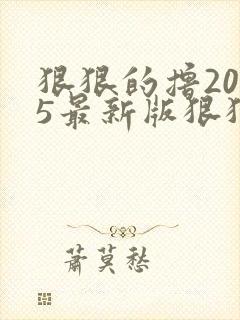 狠狠的撸20
5最新版狠狠
萧莫愁